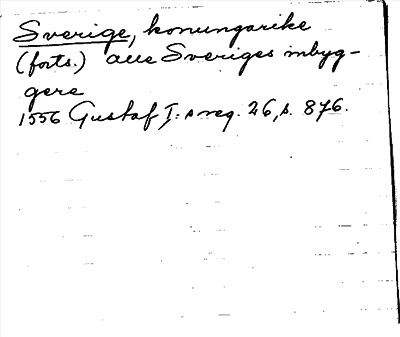 Sverige, konungarike
(forts.) alle Sveriges inbyg-
gere
1556 Gustaf I:s reg. 26, s. 876.